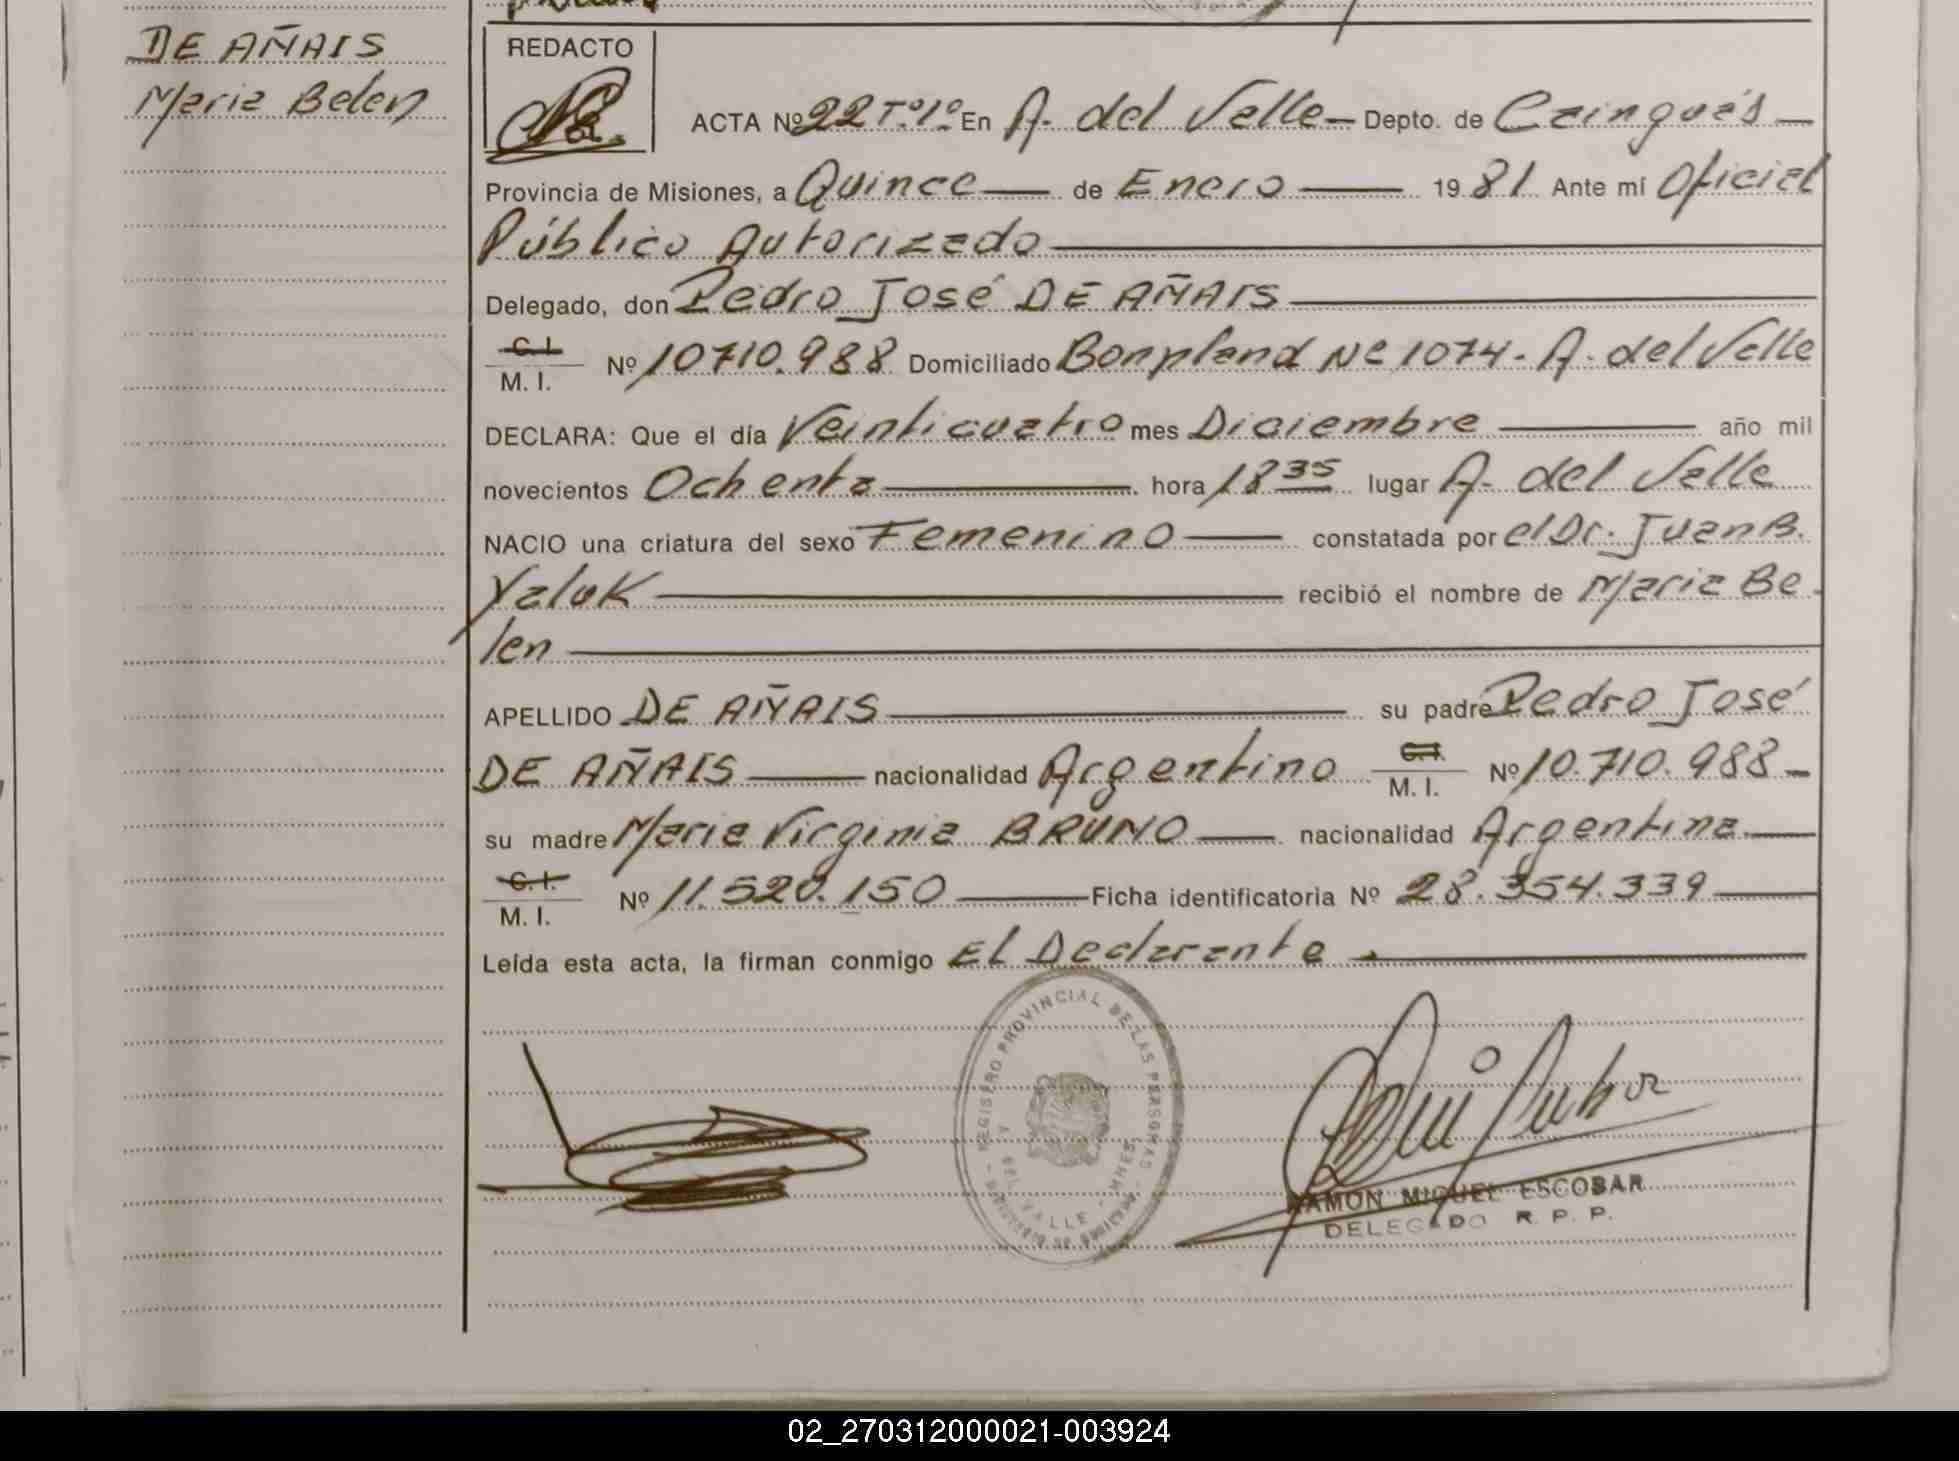 DE AÑAIS
Maria Belen
REDACTO
ACTA Nº 22 Tº 1º En A. del Valle Depto. de Cainguás
Provincia de Misiones, a Quince de Enero 1981 Ante mí Oficial
Público Autorizado
Delegado, don Pedro José DE AÑAIS
C. I.
M. I. Nº 10710.988 Domiciliado Bonpland Nº 1074 - A. del Valle
DECLARA: Que el día Veinticuatro mes Diciembre año mil
novecientos Ochenta hora 18 35 lugar A. del Valle
NACIO una criatura del sexo Femenino constatada por el Dr. Juan B.
Yaluk recibió el nombre de Maria Be-
len
APELLIDO DE AÑAIS su padre Pedro José
DE AÑAIS nacionalidad Argentino C. I. M. I. Nº 10.710.988
su madre Maria Virginia BRUNO nacionalidad Argentina
C. I.
M. I. Nº 11.520.150 Ficha identificatoria Nº 28.354.339
Leída esta acta, la firman conmigo El Declarante
REGISTRO PROVINCIAL DE LAS PERSONAS
A. DEL VALLE - MNES.
RAMON MIGUEL ESCOBAR
DELEGADO R. P. P.
02_270312000021-003924